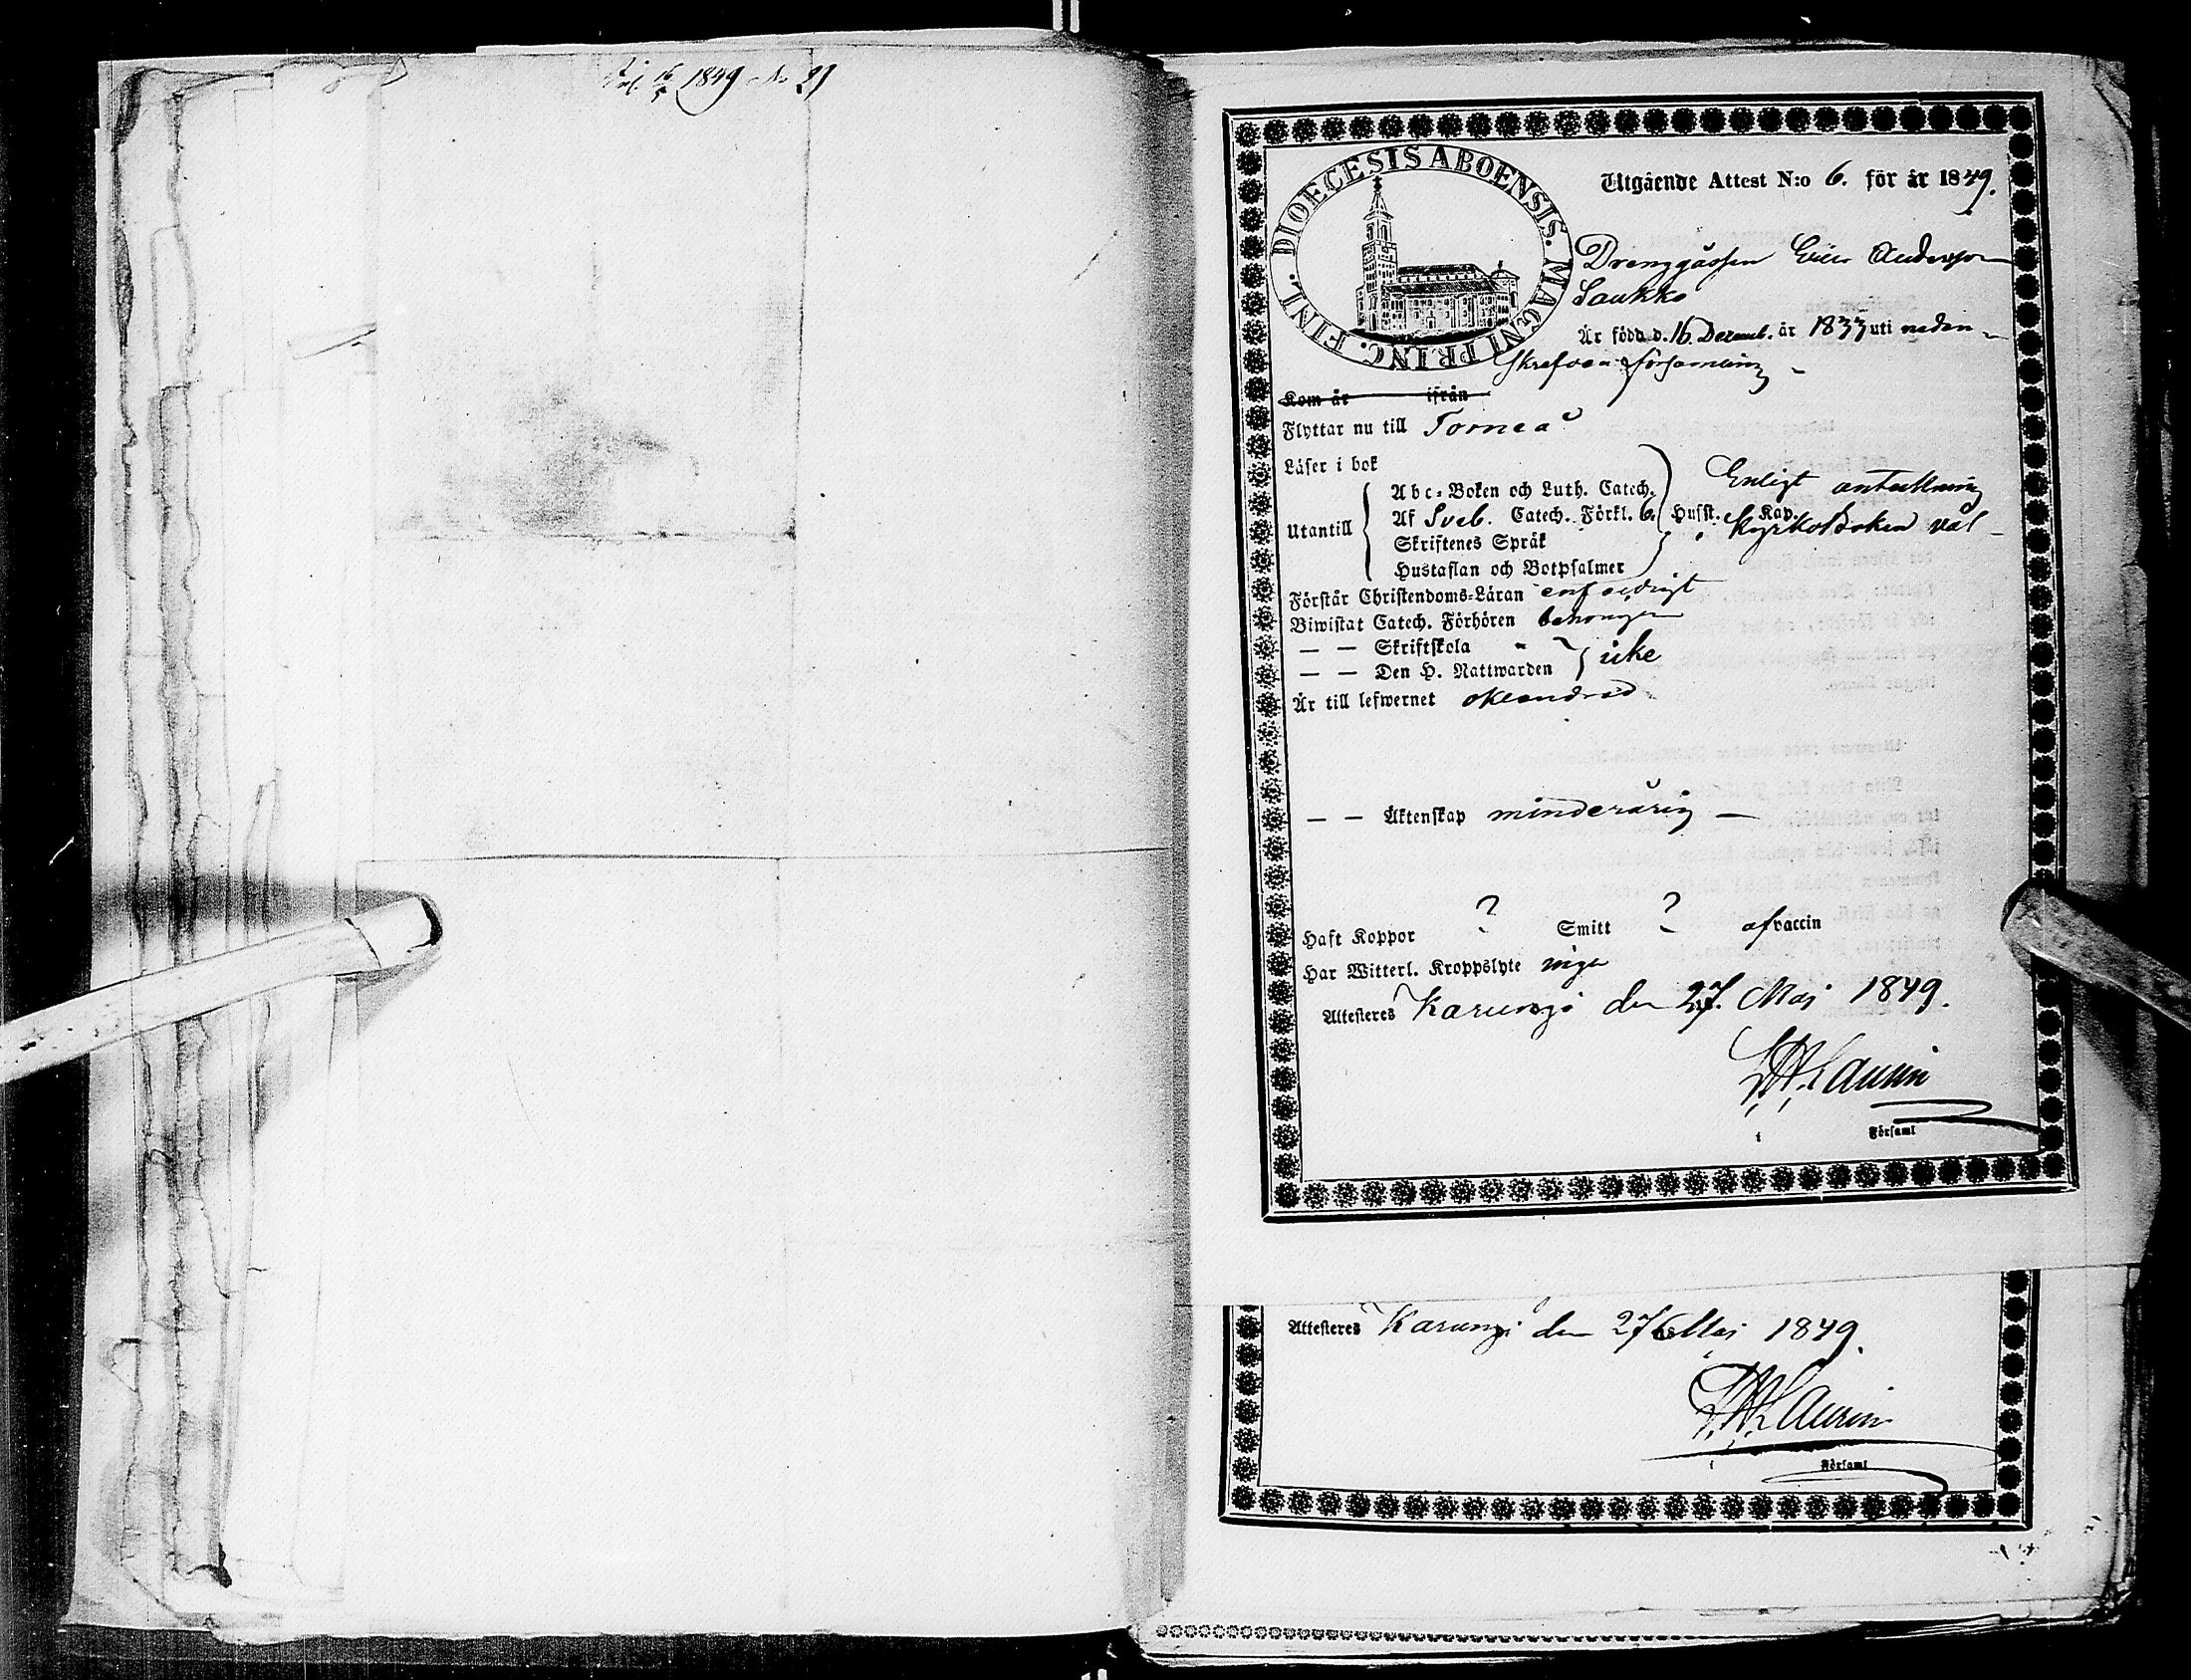 1849 No 21
DIOECESIS ABOENSIS. MAGNI PRINC. FINL.
Utgående Attest N:o 6. för år 1849.
Drenggåssen Eric Andersson
Saukko
Är född d. 16 Decemb. år 1833 uti nedan-
skrefven församling -
Kom år ifrån
Flyttar nu till Torneå
Läser i bok
Utantill
Abc-Boken och Luth. Catech.
Af Sveb. Catech. Förkl. 6. Husst. Kap.
Skriftenes Språk
Hustaflan och Botpsalmer
Enligt anteckning
i Kyrkoboken väl -
Förstår Christendoms-Läran enfaldigt
Biwistat Catech. Förhören behörigen
— — Skriftskola "
— — Den H. Nattwarden } icke
Är till lefwernet oklandrad
— — Äktenskap minderårig —
Haft Koppor ? Smitt ? af vaccin
Har Witterl. Kroppslyte inga
Attesteres Karungi den 27. Maj 1849.
Laurin
i Församl
Attesteres Karungi den 27 Maj 1849.
Laurin
i Församl